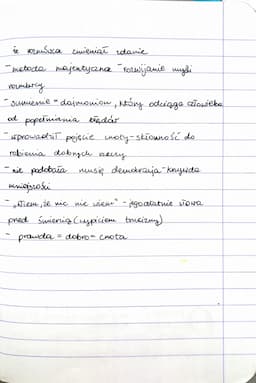 że rozmówca zmieniał zdanie
- metoda majeutyczna - rozwijanie myśli
rozmówcy
- sumienie = dajmonion, który odciąga człowieka
od popełniania błędów
- wprowadził pojęcie cnoty - skłonność do
robienia dobrych rzeczy
- nie podobała mu się demokracja - krzywda
mniejszości
- „Wiem, że nic nie wiem" - jego ostatnie słowa
przed śmiercią (wypiciem trucizny)
- prawda = dobro = cnota